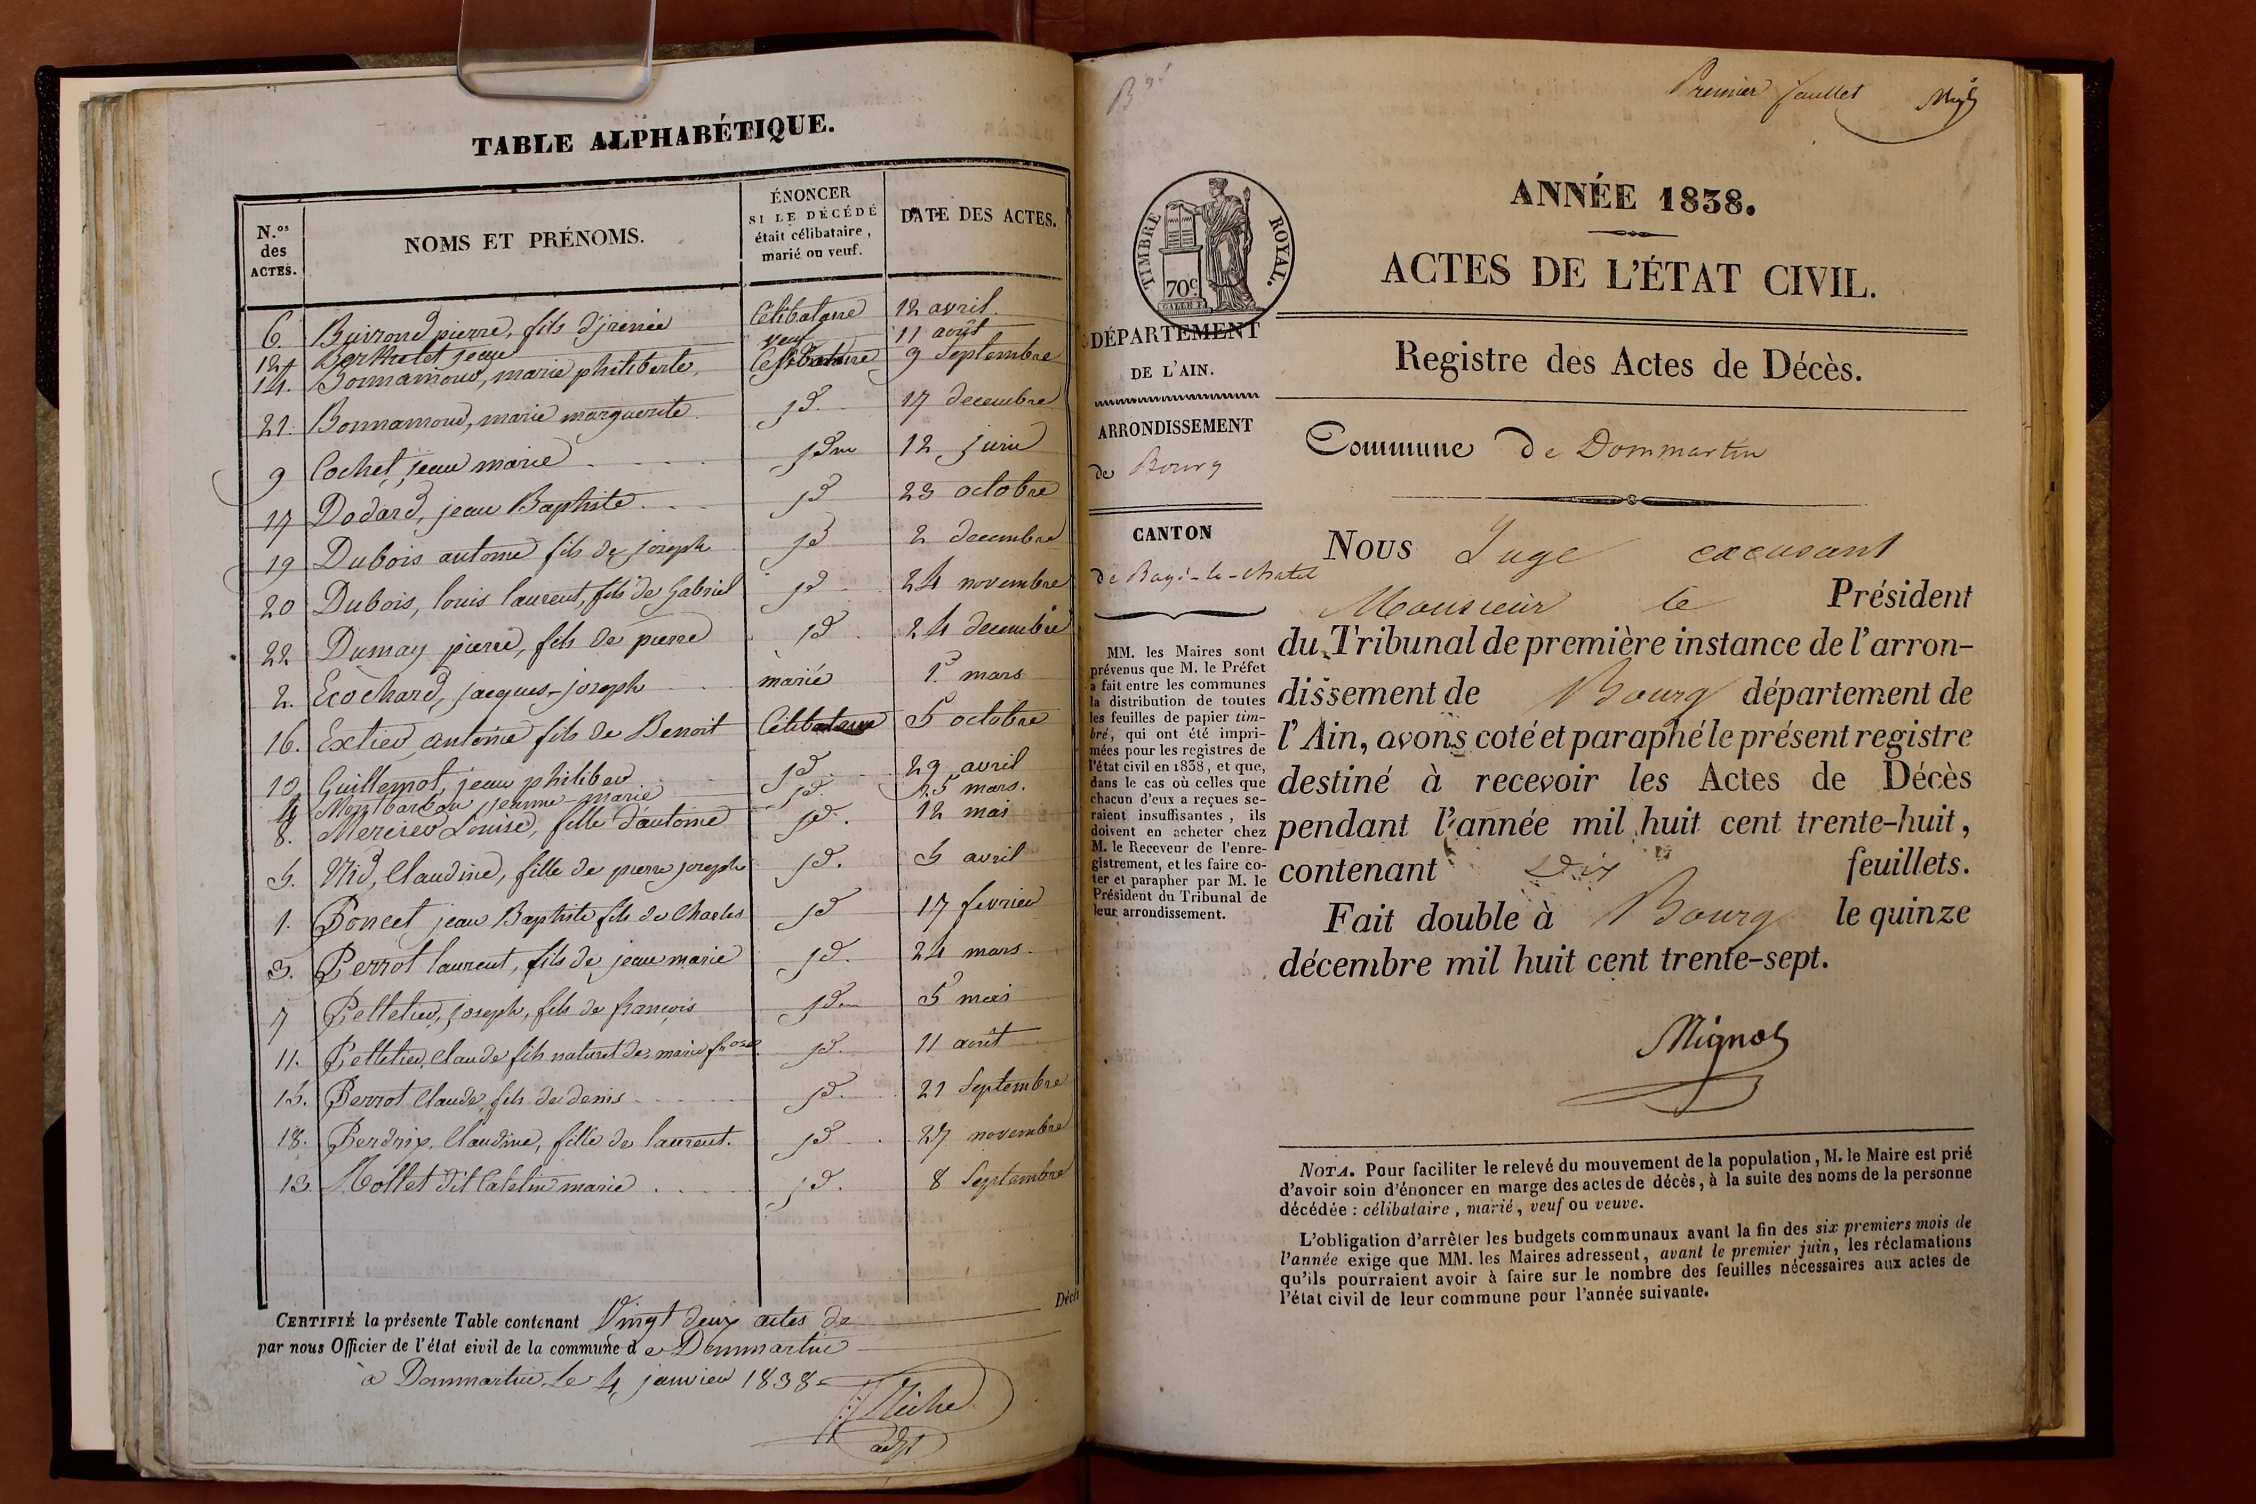 TABLE ALPHABÉTIQUE.
N.os des ACTES.
NOMS ET PRÉNOMS.
ÉNONCER
SI LE DÉCÉDÉ
était célibataire,
marié ou veuf.
DATE DES ACTES.
6. Buirrond pierre, fils d'jrenée Célibataire 12 avril
12 Berthetet jean veuf 11 août
14. Bonnamour, marie philiberte, Célibataire 9 Septembre
21. Bonnamour, marie marguerite jd. 17 decembre
9 Cochet, jean marie jdm 12 juin
17 Dodard, jean Baptiste jd 23 octobre
19 Dubois antoine fils de joseph jd 2 decembre
20 Dubois, louis laurent, fils de Gabriel jd 24 novembre
22 Dumay pierre, fils de pierre jd. 24 decembre
2. Ecochard, jacques-joseph marié 1er mars
16. Extier antoine fils de Benoit Célibataire 5 octobre
10 Guillemot, jean philiber jd 29 avril
4 Montbarbon jeanne marie jd. 25 mars.
8. Mercier Louise, fille d'antoine jd. 12 mai
5. Nid, Claudine, fille de pierre joseph jd. 5 avril
1. Poncet jean Baptiste fils de Charles jd 17 fevrier
3. Perrot laurent, fils de jean marie jd. 24 mars.
7 Pelletier, joseph, fils de françois jdm 5 mai
11. Pelletier, Claude fils naturel de marie fsoise jd. 11 août
15. Perrot Claude, fils de denis jd. 21 Septembre
18. Perdrix, Claudine, fille de laurent. jd. 27 novembre
13 Mollet dit Catelin marie jd. 8 Septembre
CERTIFIÉ la présente Table contenant Vingt deux actes de Décès
par nous Officier de l'état civil de la commune de Dommartin
à Dommartin le 4 janvier 1838
adjt
Premier feuillet
ANNÉE 1838.
ACTES DE L'ÉTAT CIVIL.
Registre des Actes de Décès.
Commune de Dommartin
TIMBRE ROYAL.
70c
DÉPARTEMENT
DE L'AIN.
ARRONDISSEMENT
de Bourg
CANTON
de Bagé-le-chatel
MM. les Maires sont
prévenus que M. le Préfet
a fait entre les communes
la distribution de toutes
les feuilles de papier tim-
bré, qui ont été impri-
mées pour les registres de
l'état civil en 1838, et que,
dans le cas où celles que
chacun d'eux a reçues se-
raient insuffisantes, ils
doivent en acheter chez
M. le Receveur de l'enre-
gistrement, et les faire co-
ter et parapher par M. le
Président du Tribunal de
leur arrondissement.
Nous Juge excusant
Monsieur le Président
du Tribunal de première instance de l'arron-
dissement de Bourg département de
l'Ain, avons coté et paraphé le présent registre
destiné à recevoir les Actes de Décès
pendant l'année mil huit cent trente-huit,
contenant Dix feuillets.
Fait double à Bourg le quinze
décembre mil huit cent trente-sept.
Mignot
NOTA. Pour faciliter le relevé du mouvement de la population, M. le Maire est prié
d'avoir soin d'énoncer en marge des actes de décès, à la suite des noms de la personne
décédée : célibataire, marié, veuf ou veuve.
L'obligation d'arrêter les budgets communaux avant la fin des six premiers mois de
l'année exige que MM. les Maires adressent, avant le premier juin, les réclamations
qu'ils pourraient avoir à faire sur le nombre des feuilles nécessaires aux actes de
l'état civil de leur commune pour l'année suivante.